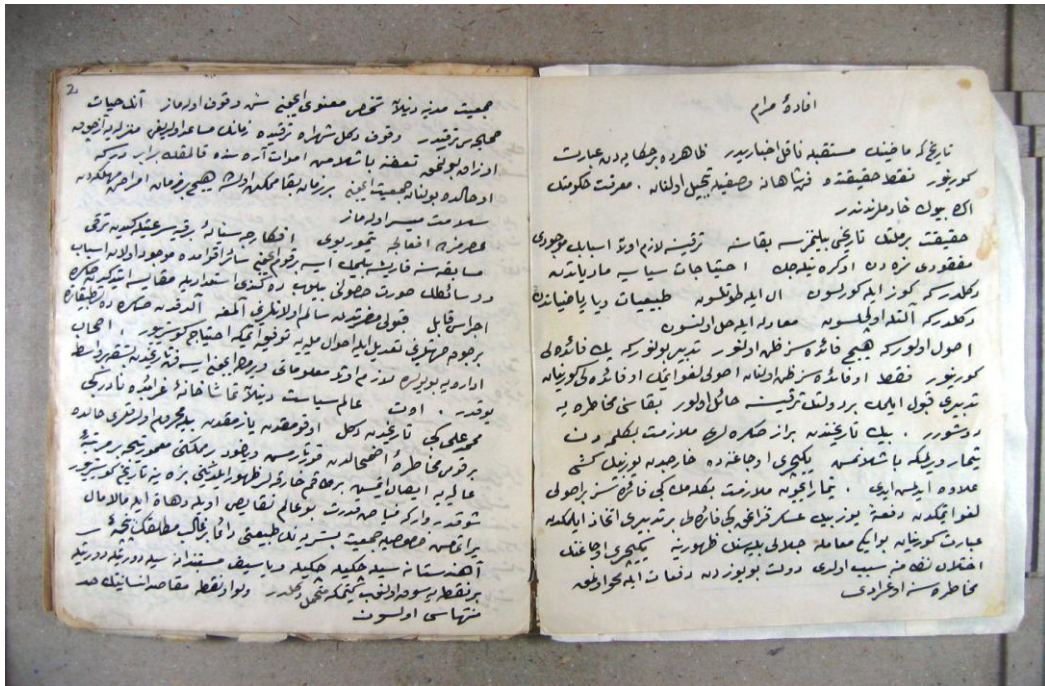 افادۀ مرام
تاریخ که ماضینك مستقبله ناقل اخباریدر ظاهرده بر حکایه دن عبارت
کورینور فقط حقیقتده فن شاهانه وصفیله تبجیل اولنان معرفت حکومتك
اك بیوك خادملرندندر
حقیقت بر ملتك تاریخی بیلنمزسه بقاسنه ترقیسنه لازم اولان اسبابك موجودی
مفقودی نره دن اوکره نیله جك احتیاجات سیاسیه مادیاتدن
دکلدر که کوز ایله کورلسون ال ایله طوتلسون طبیعیات ویا ریاضیاتدن
دکلدر که آلتله اولچلسون معادله ایله حل اولنسون
اصول اولور که هیچ فائده سز ظن اولنور تدبیر بولنور که پك فائده لی
کورینور فقط او فائده سز ظن اولنان اصولی لغو ایتمك او فائده لی کورینان
تدبیری قبول ایلمك بر دولتك ترقیسنه حائل اولور بقاسنی مخاطره یه
دوشورر . بیك تاریخندن براز صکره لری ملازمت بکلمه دن
تیمار ویرلمکه باشلانمش یکیچری اوجاغنه ده خارجدن یوز بیك کشی
علاوه ایدلمش ایدی . تیمار ایچون ملازمت بکلمك کبی فائده سز بر اصولی
لغو ایتمکدن دفعةً یوز بیك عسکر قزانمق کبی فائده لی بر تدبیری اتخاذ ایلمکدن
عبارت کورینان بو ایکی معامله جلالی بلیه سنك ظهورینه یکیچری اوجاغنك
اختلال نظامنه سبب اولدی دولت بو یوزدن دفعات ایله محو اولمق
مخاطره سنه اوغرادی
2
جمعیت مدنیه دنیلان شخص معنوی ایچون سن وقوف اوله ماز آنك حیات
صحیحه سی ترقیدر وقوف دکل شهراه ترقیده زمانك مساعد اولدیغی منزله
اوزاق بولنمق تعفنه باشلامش اموات آره سنده قالمقله برابر دیمکدر
او حالده بولنان جمعیت ایچون بر زمان بقا ممکن اولسه هیچ بر زمان امراض مهلکه دن
سلامت میسر اوله ماز
عصرمزده افعالجه تیموریولی افکارجه ترقی
مسابقه سنه قارشمه یلمك ایسه بر قوم ایچون سائر اقوامده موجود اولان اسباب
و وسائطك صورت حصولنی بیلوب ده کندی استعدادیله مقایسه ایتدکدن صکره
اجراسی قابل قبولی مضرتدن سالم اولانلری آلمغه آندن صکره ده تطبیقاتده
بر چوق جهتلرینی تعدیل ایله احوال ملیه یه توفیق ایتمکه احتیاج کوستریور . اصحاب
اداره یه بو یولده لازم اولان معلوماتی ویرمك ایچون ایسه فن تاریخدن بشقه بر واسطه
یوقدر . اوت عالم سیاست دنیلان تماشاخانۀ غرائبده نادر کبی
محمد علی کبی تاریخدن دکل اوقومقدن یازمقدن بیله محروم اولدقلری حالده
بر قومی مخاطرۀ اضمحلالدن قورتارمش ویاخود بر مملکتی معموریتجه بر مرتبۀ
عالیه یه ایصال ایتمش بر طاقم خارقه لر ظهور ایلدیکنی بزه ینه تاریخ کوستریور
شو قدر وار که فیاض قدرت بو عالم نقایصی اویله دهات ایله مالامال
یراتمامش خصوصیله جمعیت بشریه نك طبیعتی دائما بر غالب مطلقك پنجۀ
آهنیننده سیله چکیله چکیله ویا سیف مستبدانه سیله دورتیله دورتیله
بر نقطه یه سوق اولنوب کیتمکه متحمل دکلدر ولو او نقطه مقاصد انسانیتك حد
منتهاسی اولسون